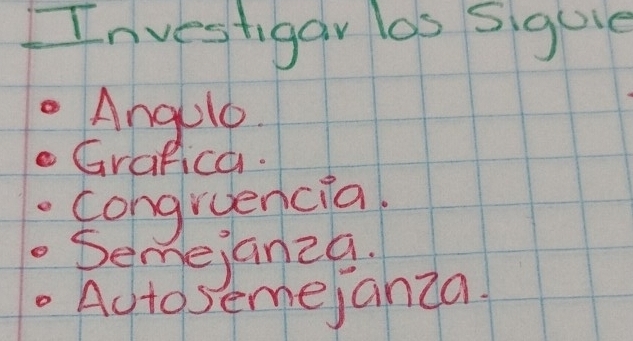 Investigar los Siguie
• Angulo.
• Grafica.
• Congruencia.
• Semejanza.
• Autosemejanza.